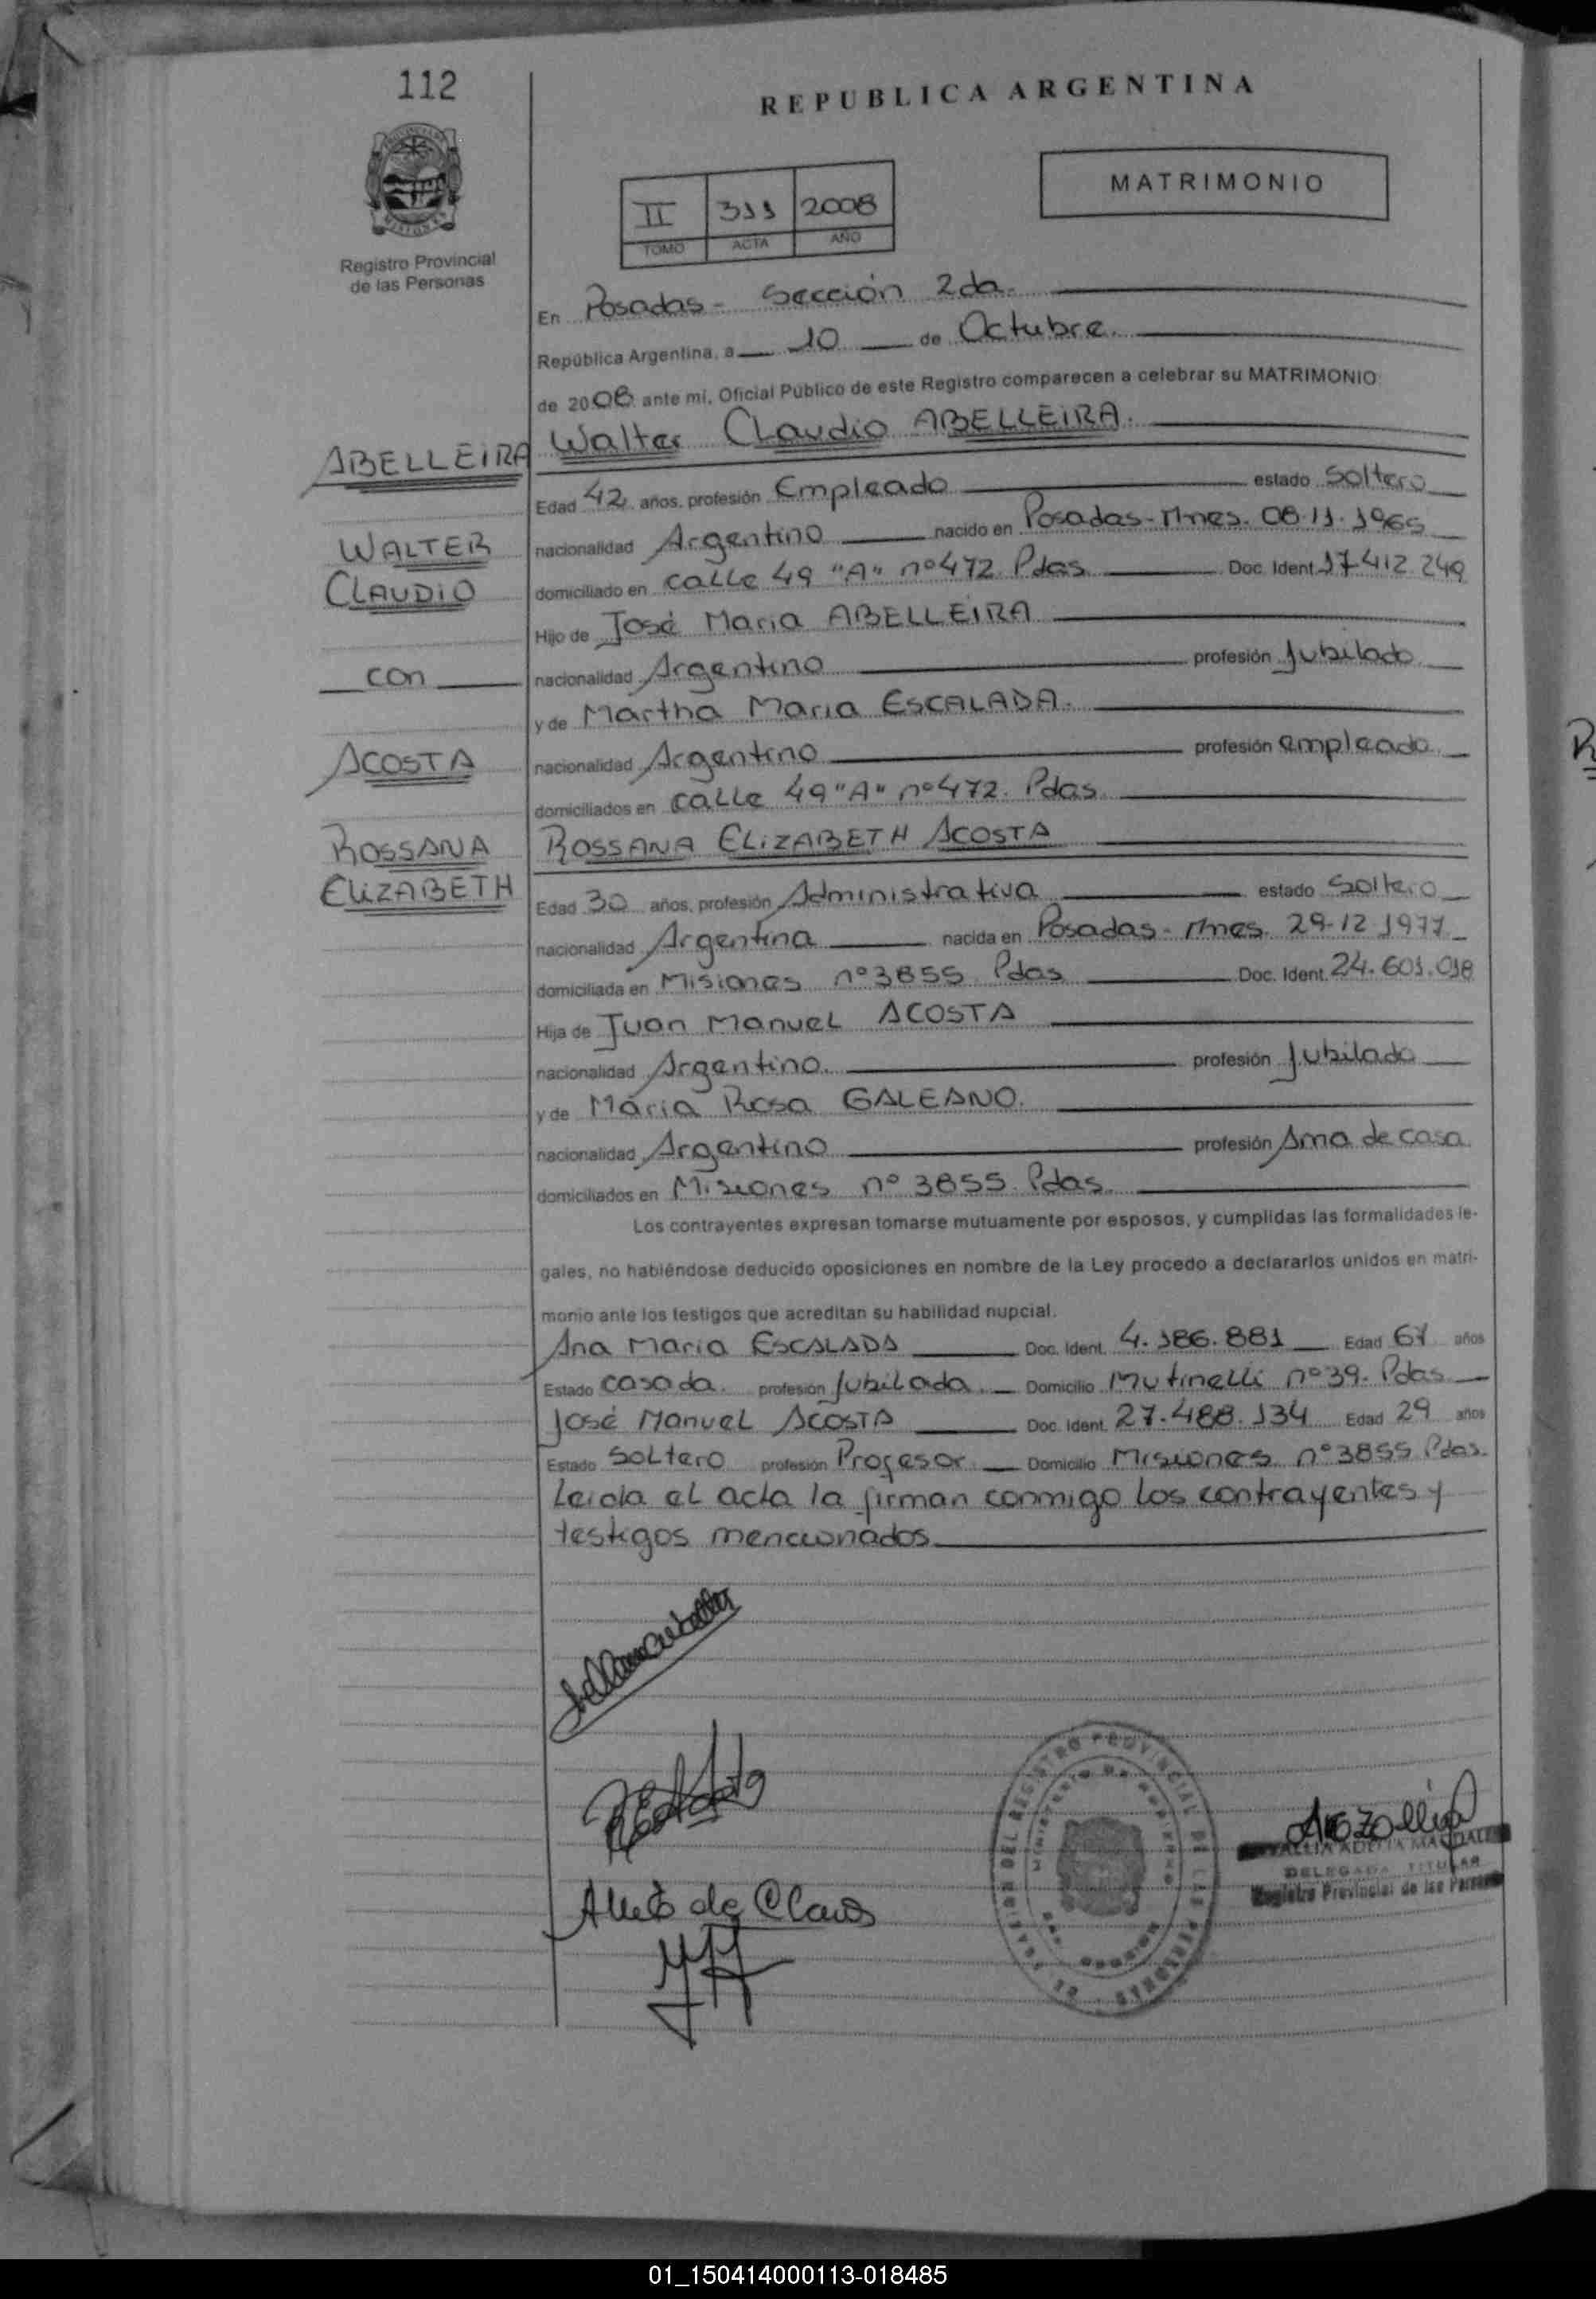 112
REPUBLICA ARGENTINA
MATRIMONIO
II 311 2008
TOMO ACTA AÑO
Registro Provincial
de las Personas
En Posadas - Sección 2da.
República Argentina, a 10 de Octubre.
de 2008 ante mi, Oficial Público de este Registro comparecen a celebrar su MATRIMONIO:
ABELLEIRA Walter Claudio ABELLEIRA.
Edad 42 años, profesión Empleado estado Soltero
WALTER nacionalidad Argentino nacido en Posadas - Mnes. 08.11.1965
CLAUDIO domiciliado en calle 49 "A" nº 472 Pdas Doc. Ident. 17412.249
Hijo de José Maria ABELLEIRA
con nacionalidad Argentino profesión Jubilado
y de Martha Maria ESCALADA.
ACOSTA nacionalidad Argentino profesión empleado
domiciliados en calle 49 "A" nº 472. Pdas.
ROSSANA ROSSANA ELIZABETH ACOSTA
ELIZABETH Edad 30 años, profesión Administrativa estado Soltero
nacionalidad Argentina nacida en Posadas - Mnes. 29-12 1977
domiciliada en Misiones nº 3855 Pdas Doc. Ident. 24.601.018
Hija de Juan Manuel ACOSTA
nacionalidad Argentino. profesión Jubilado
y de Maria Rosa GALEANO.
nacionalidad Argentino profesión Ama de casa
domiciliados en Misiones nº 3855. Pdas.
Los contrayentes expresan tomarse mutuamente por esposos, y cumplidas las formalidades le-
gales, no habiéndose deducido oposiciones en nombre de la Ley procedo a declararlos unidos en matri-
monio ante los testigos que acreditan su habilidad nupcial.
Ana Maria ESCALADA Doc. Ident. 4.186.881 Edad 67 años
Estado casada. profesión Jubilada. Domicilio Mutinelli nº 39. Pdas.
José Manuel ACOSTA Doc. Ident. 27.488.134 Edad 29 años
Estado Soltero profesión Profesor Domicilio Misiones nº 3855 Pdas.
Leida el acta la firman conmigo los contrayentes y
testigos mencionados
REGISTRO PROVINCIAL DE LAS PERSONAS
MINISTERIO DE GOBIERNO
MISIONES
DELEGADA TITULAR
Registro Provincial de las Personas
01_150414000113-018485